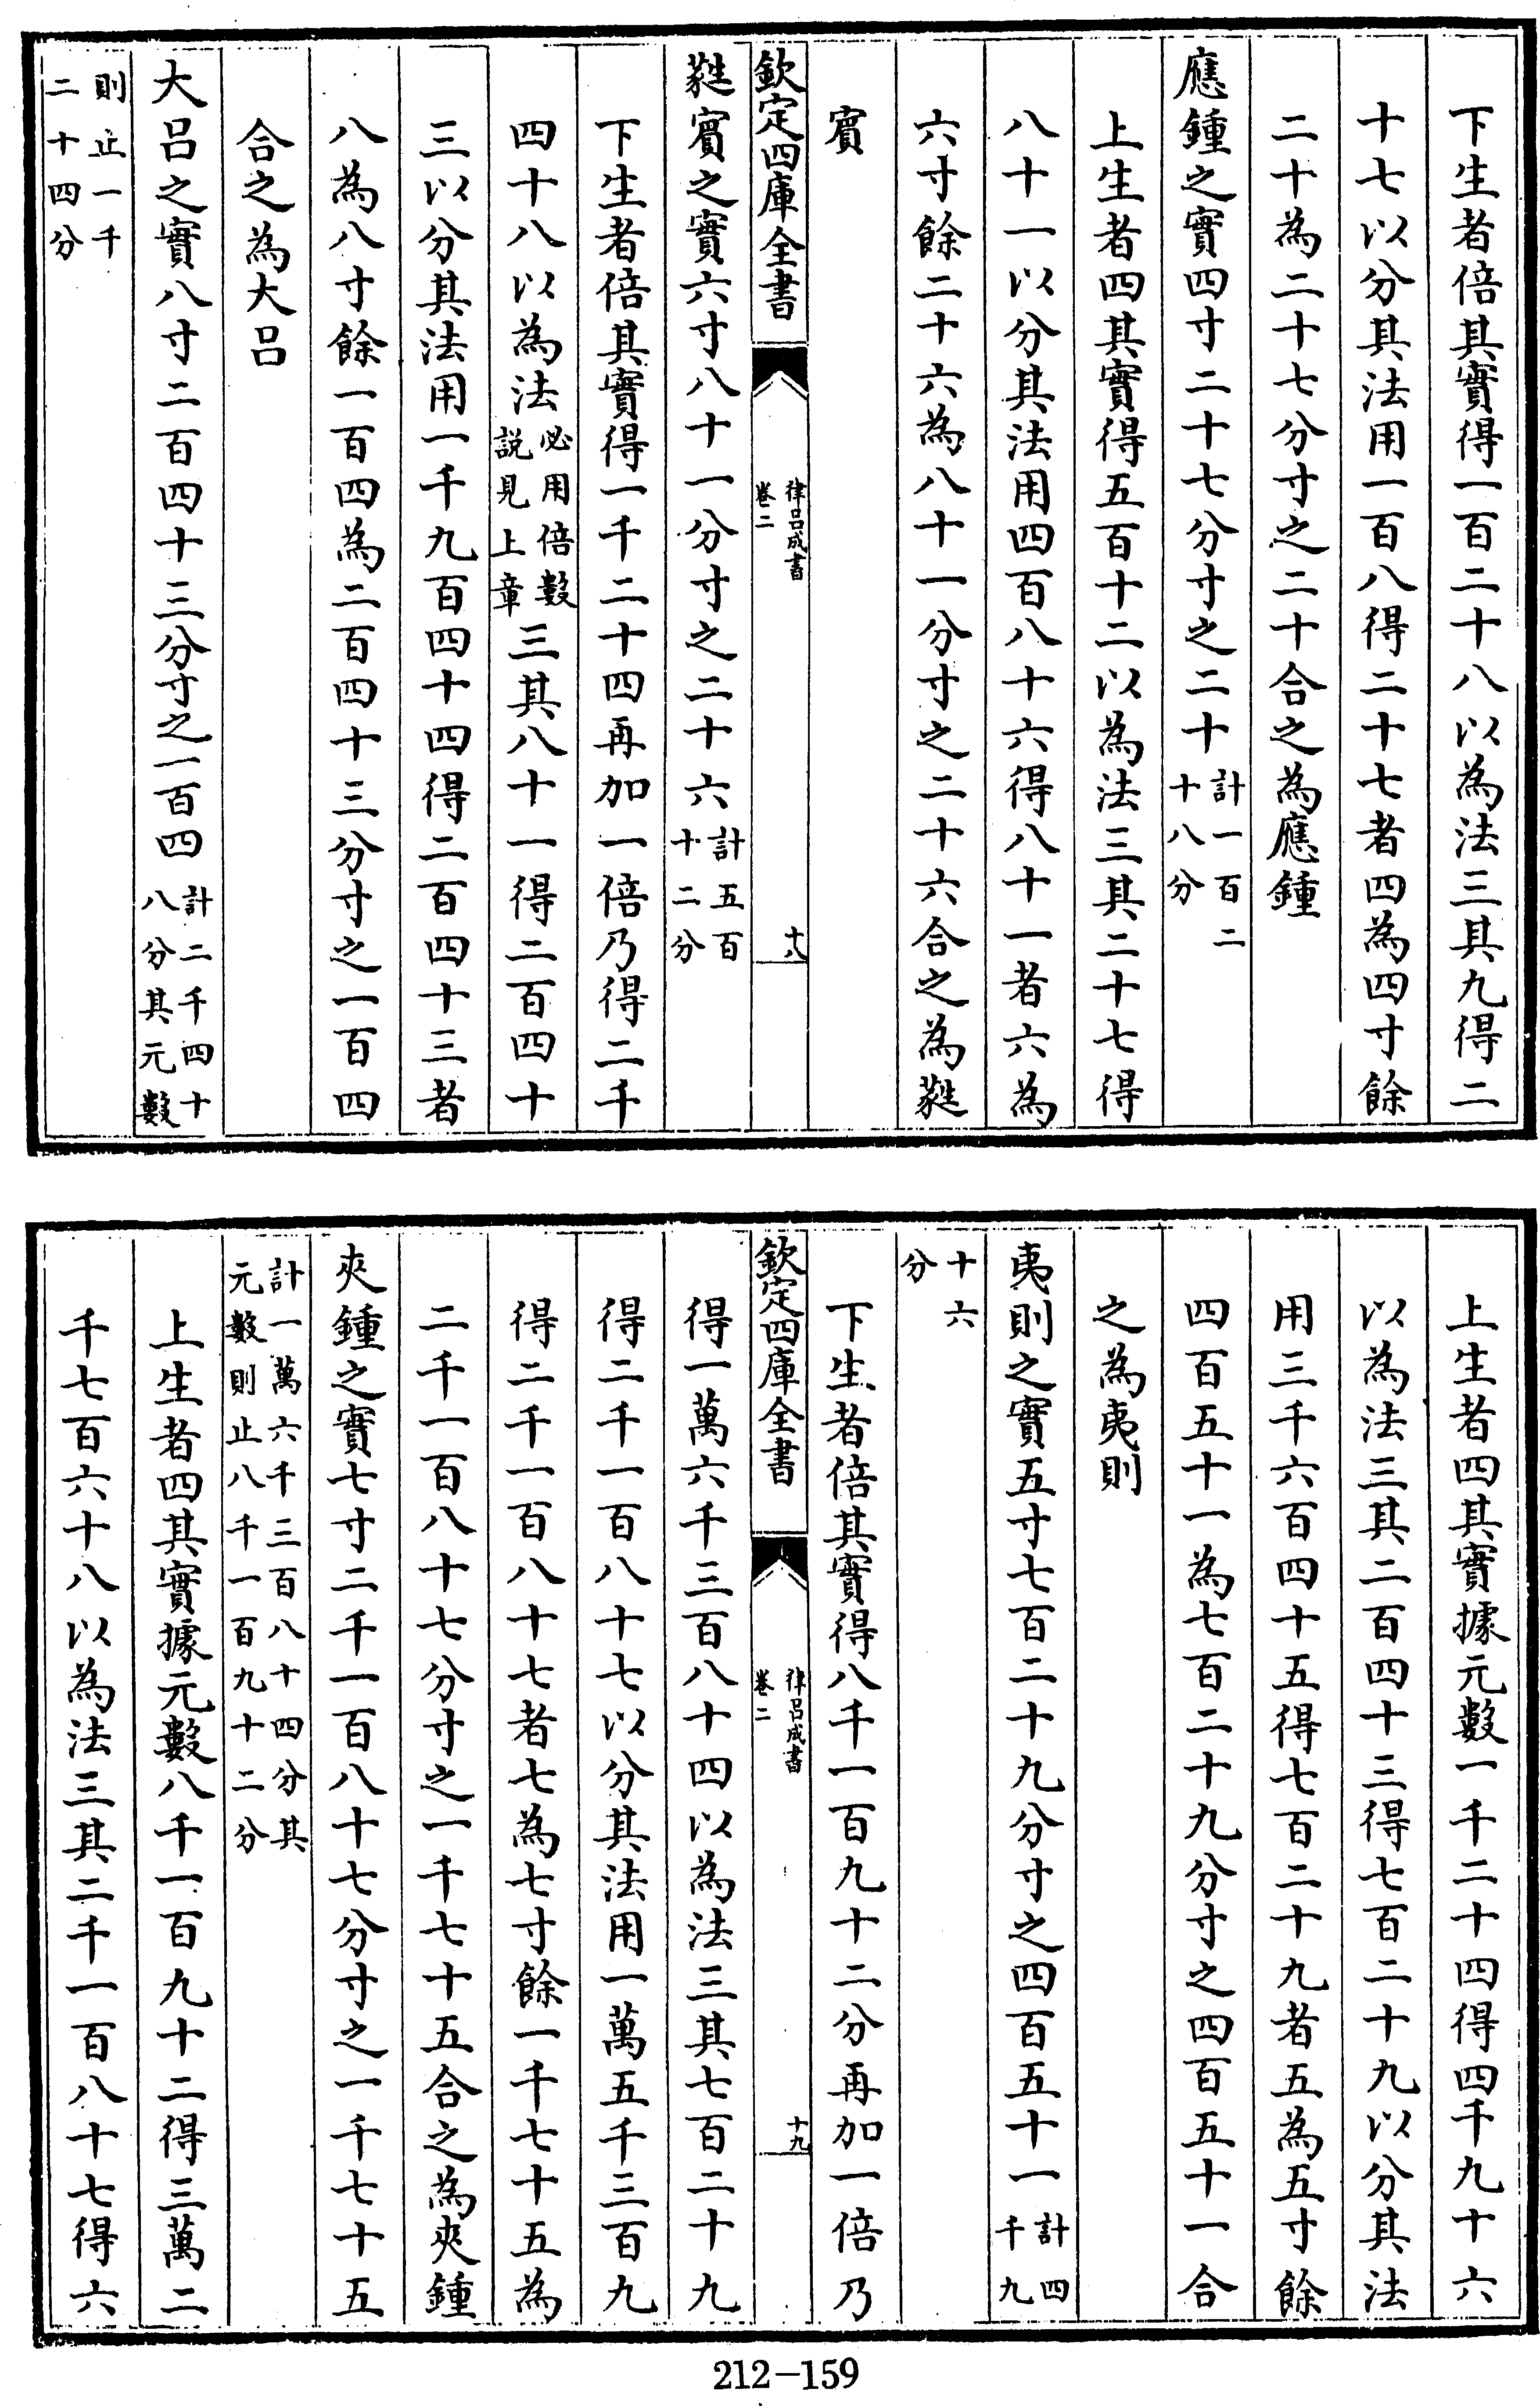 下生者倍其實得一百二十八以為法三其九得二
十七以分其法用一百八得二十七者四為四寸餘
二十為二十七分寸之二十合之為應鍾
應鍾之實四寸二十七分寸之二十計一百二十八分
上生者四其實得五百十二以為法三其二十七得
八十一以分其法用四百八十六得八十一者六為
六寸餘二十六為八十一分寸之二十六合之為蕤
賓
欽定四庫全書
律呂成書
卷二
十八
蕤賓之實六寸八十一分寸之二十六計五百十二分
下生者倍其實得一千二十四再加一倍乃得二千
四十八以為法必用倍數說見上章三其八十一得二百四十
三以分其法用一千九百四十四得二百四十三者
八為八寸餘一百四為二百四十三分寸之一百四
合之為大呂
大呂之實八寸二百四十三分寸之一百四計二千四十八分其元數
則止一千二十四分
上生者四其實據元數一千二十四得四千九十六
以為法三其二百四十三得七百二十九以分其法
用三千六百四十五得七百二十九者五為五寸餘
四百五十一為七百二十九分寸之四百五十一合
之為夷則
夷則之實五寸七百二十九分寸之四百五十一計四千九
十六分
下生者倍其實得八千一百九十二分再加一倍乃
欽定四庫全書
律呂成書
卷二
十九
得一萬六千三百八十四以為法三其七百二十九
得二千一百八十七以分其法用一萬五千三百九
得二千一百八十七者七為七寸餘一千七十五為
二千一百八十七分寸之一千七十五合之為夾鍾
夾鍾之實七寸二千一百八十七分寸之一千七十五
計一萬六千三百八十四分其元數則止八千一百九十二分
上生者四其實據元數八千一百九十二得三萬二
千七百六十八以為法三其二千一百八十七得六
212-159